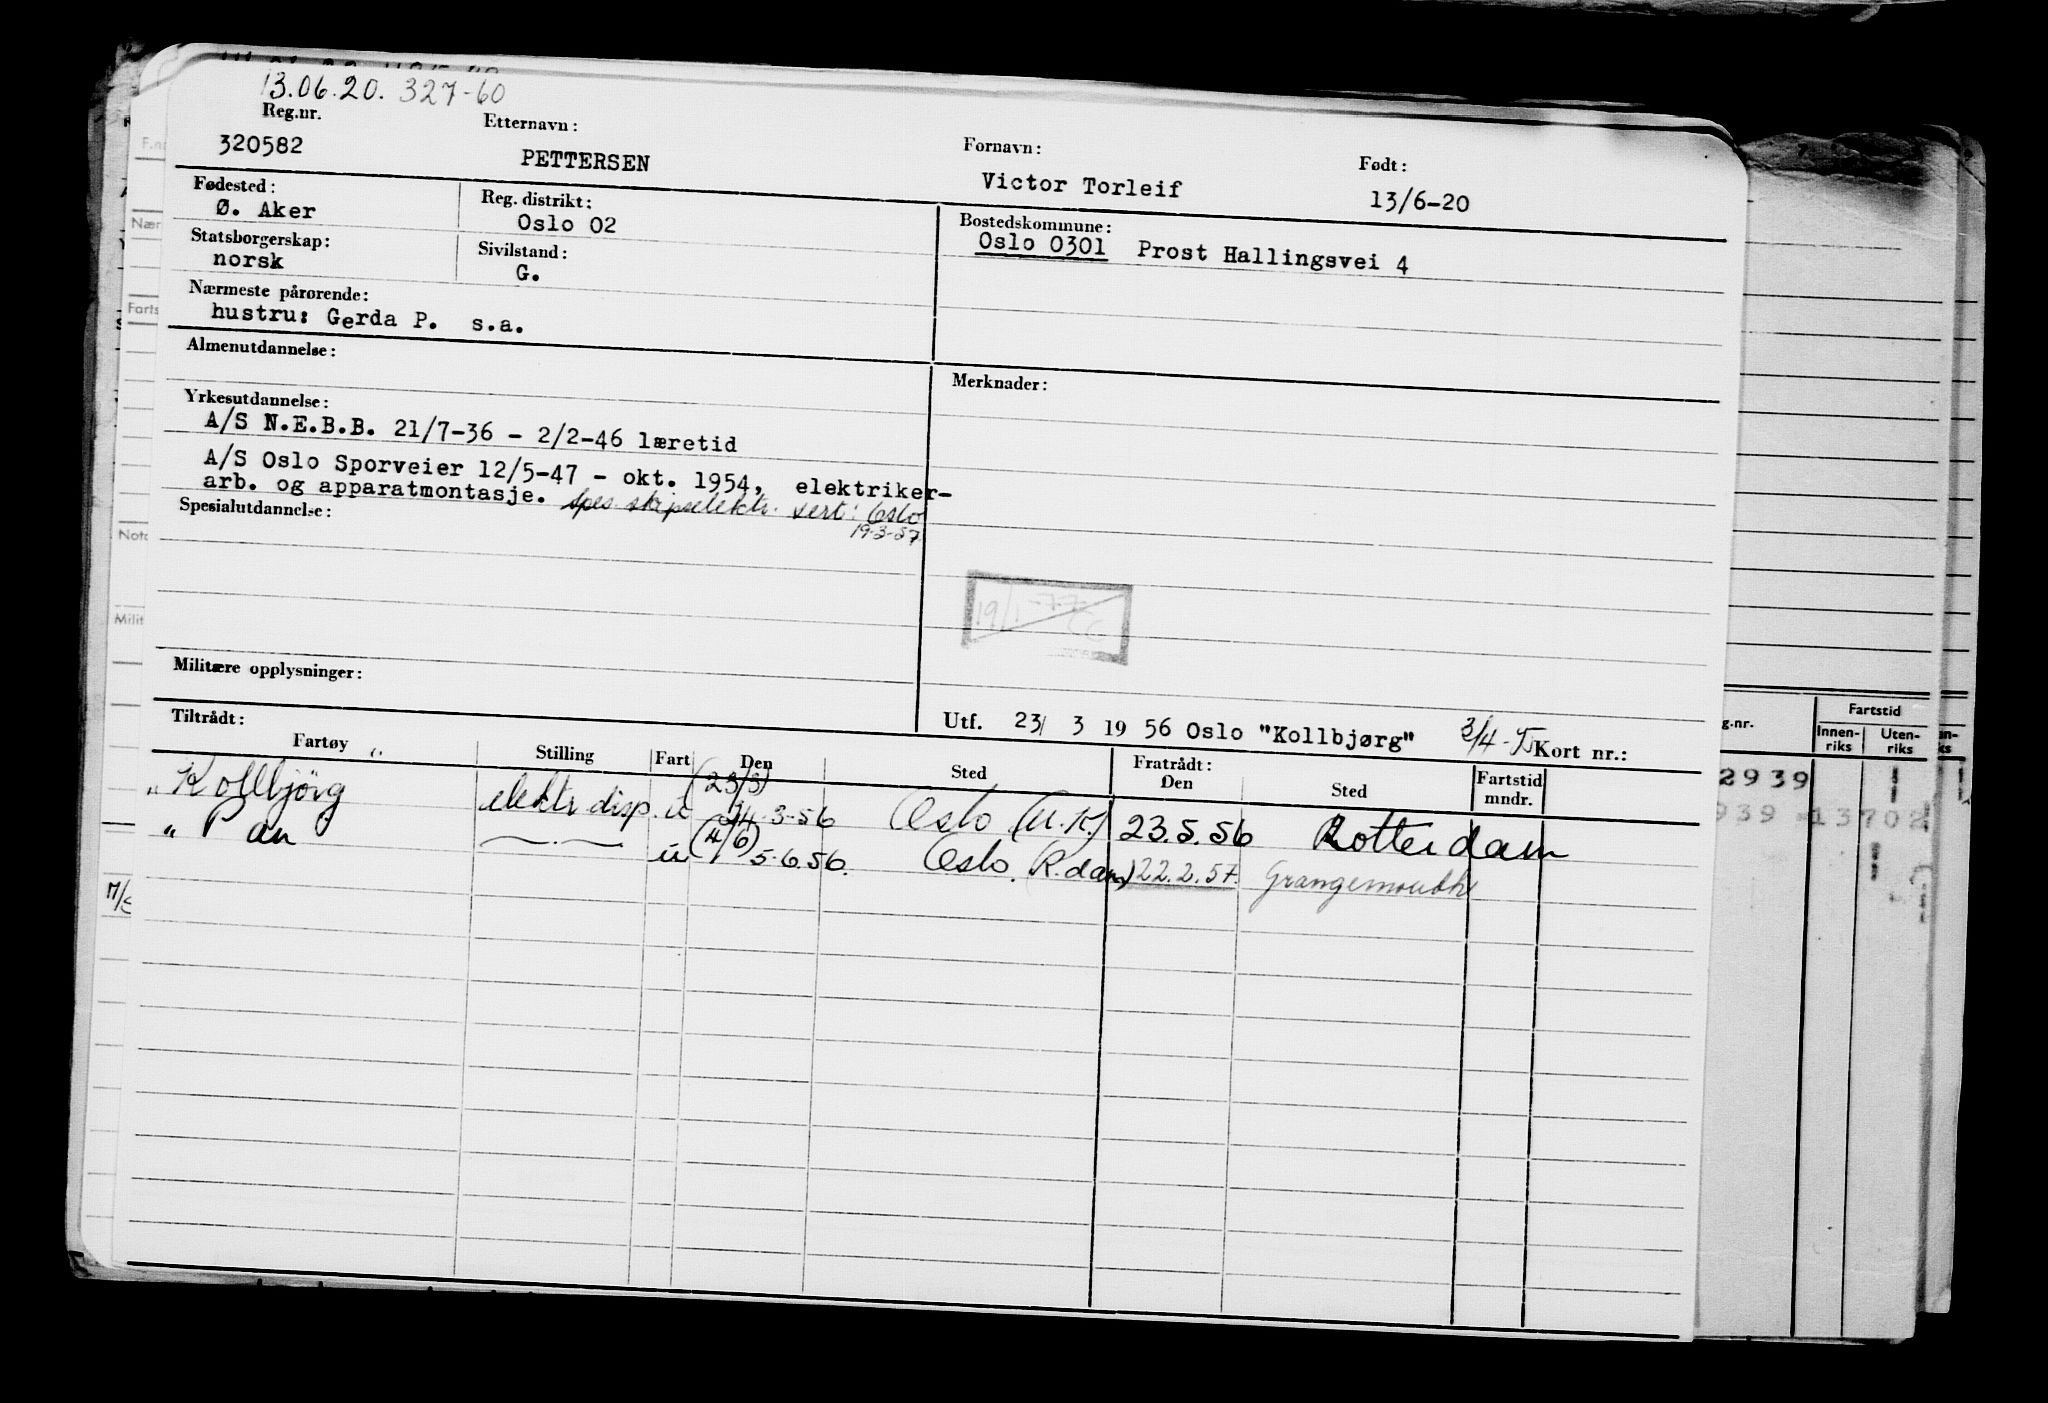 13.06.20. 327-60
Reg.nr. Etternavn: Fornavn: Født:
320582 PETTERSEN Victor Torleif 13/6-20
Fødested: Reg. distrikt: Bostedskommune:
Ø. Aker Oslo 02 Oslo 0301 Prost Hallingsvei 4
Statsborgerskap: Sivilstand:
norsk G.
Nærmeste pårørende:
hustru: Gerda P. s.a.
Almenutdannelse: Merknader:
Yrkesutdannelse:
A/S N.E.B.B. 21/7-36 - 2/2-46 læretid
A/S Oslo Sporveier 12/5-47 - okt. 1954, elektriker-
arb. og apparatmontasje. spes. skipselektr. sert: Oslo
19-3-57
Spesialutdannelse:
19/1-77
Militære opplysninger:
Utf. 23/ 3 19 56 Oslo "Kollbjørg" 3/4- Kort nr.:
Tiltrådt: Fratrådt:
Fartøy Stilling Fart Den Sted Den Sted Fartstid mndr.
"Kollbjörg elektr. disp. u (23/3) 24.3-56 Oslo (U.K.) 23.5.56 Rotterdam
" Pan —.— u (4/6) 5.6.56. Oslo. (R.dam) 22.2.57. Grangemouth
g.nr. Fartstid
Innen-riks Uten-riks
2939
939 13702
F.n
Nær
Farts
Note
Milit
M/S